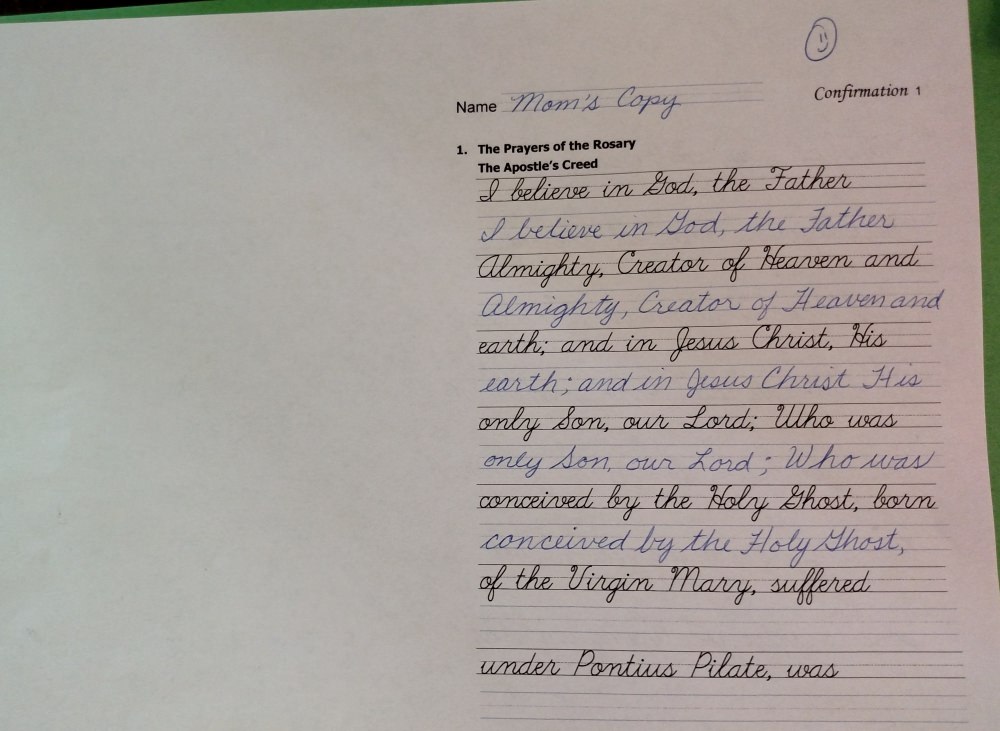 Name Mom's Copy
Confirmation 1
1. The Prayers of the Rosary
The Apostle's Creed
I believe in God, the Father
I believe in God, the Father
Almighty, Creator of Heaven and
Almighty, Creator of Heaven and
earth; and in Jesus Christ, His
earth; and in Jesus Christ His
only Son, our Lord; Who was
only Son, our Lord; Who was
conceived by the Holy Ghost, born
conceived by the Holy Ghost,
of the Virgin Mary, suffered
under Pontius Pilate, was